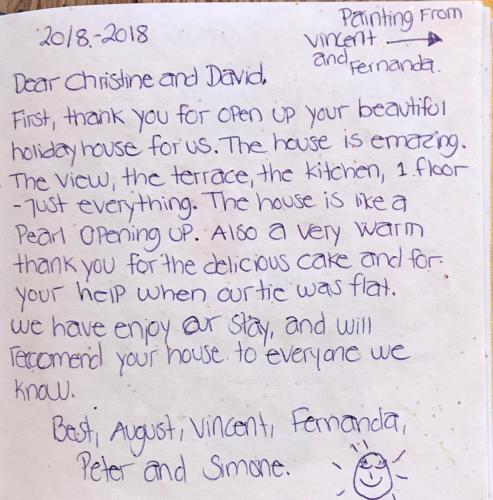 20/8.-2018
Painting From
Vincent
and Fernanda.
Dear Christine and David,
First, thank you for open up your beautiful
holiday house for us. The house is emazing.
The view, the terrace, the kitchen, 1. floor
- Just everything. The house is like a
Pearl opening up. Also a very warm
thank you for the delicious cake and for
your help when our tie was flat.
we have enjoy our stay, and will
recomend your house to everyone we
know.
Best, August, Vincent, Fernanda,
Peter and Simone.